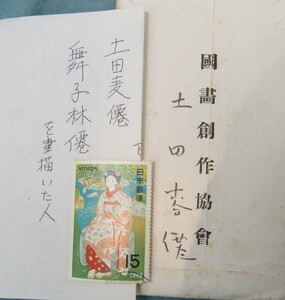 國畫創作協會
土田麥僊
土田麦僊
舞子林僊
を描いた人
NIPPON
日本郵便
15